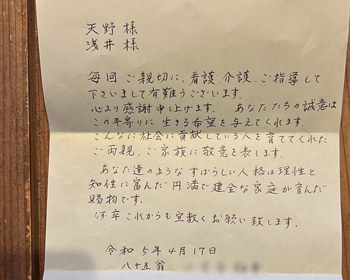 天野様
浅井様
毎回ご親切に、看護 介護、ご指導して
下さいまして有難うございます。
心より感謝申し上げます。 あなたたちの誠意は
この年寄りに生きる希望を与えてくれます。
こんなに社会に貢献している人を育ててくれた
ご両親、ご家族に敬意を表します。
あなた達のようなすばらしい人格は理性と
知性に富んだ円満で健全な家庭が育んだ
賜物です。
何卒これからも宜敷くお願い致します。
令和5年4月17日
八十五翁